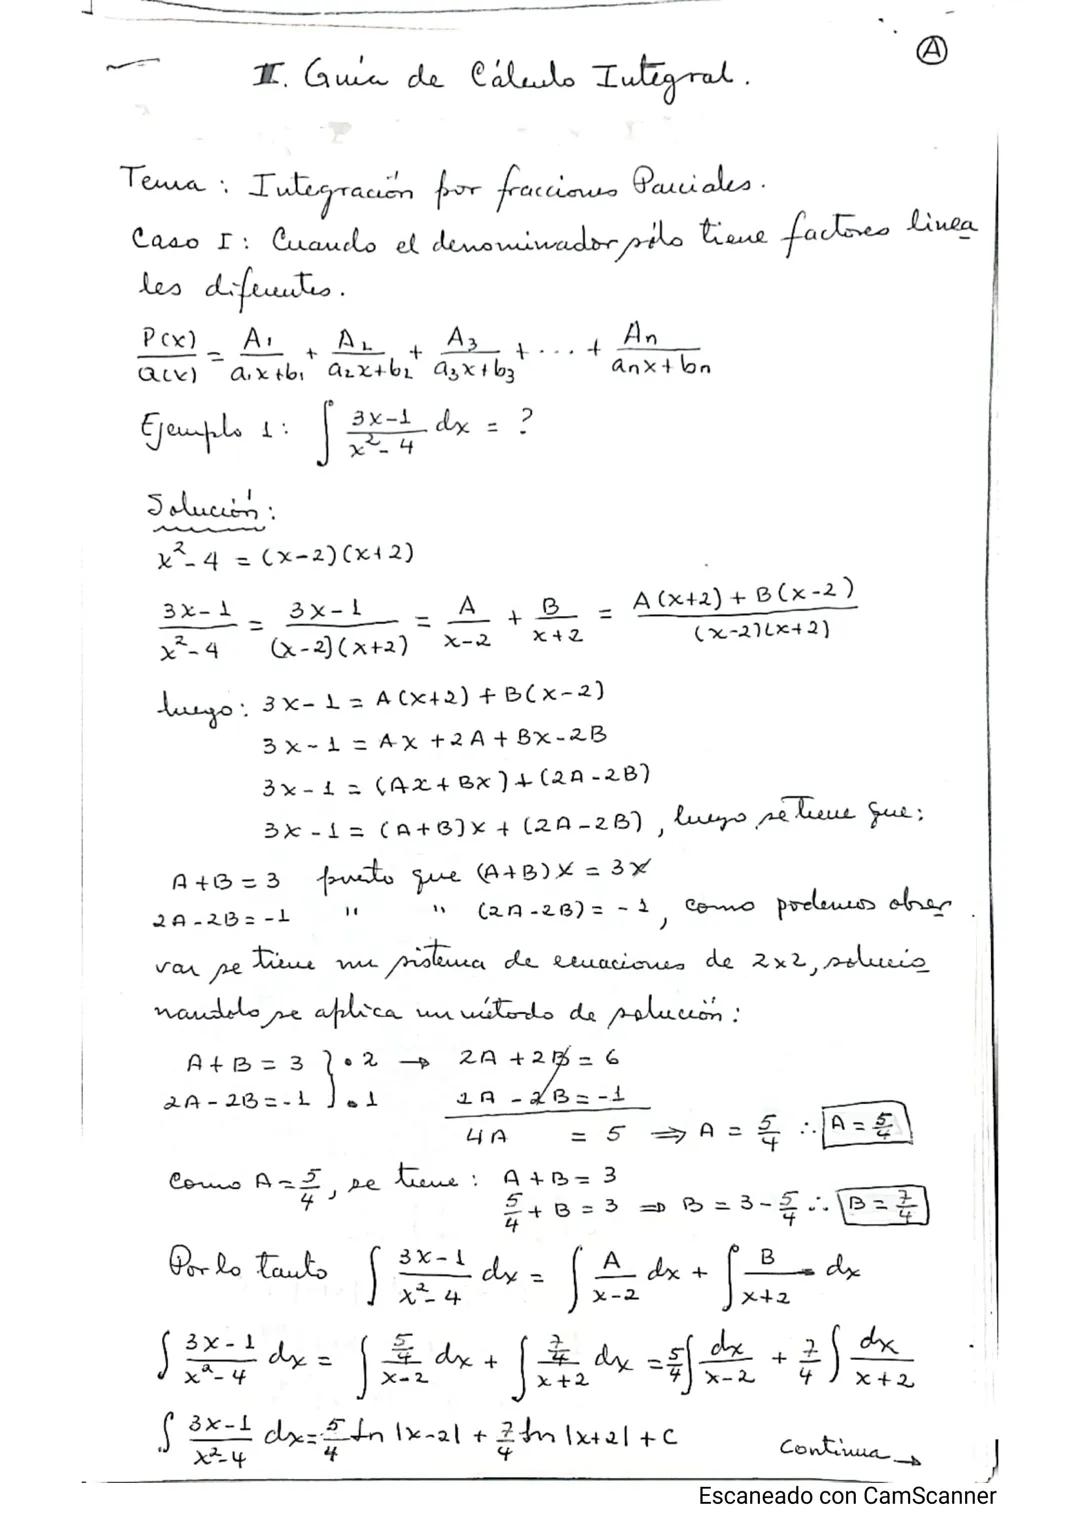 Ⓐ
II. Guía de Cálculo Integral.
Tema: Integración por fracciones Parciales.
Caso I: Cuando el denominador sólo tiene factores linea
les diferentes.
P(x)/Q(x) = A₁/(a₁x+b₁) + A₂/(a₂x+b₂) + A₃/(a₃x+b₃) + ... + An/(anx+bn)
Ejemplo 1: ∫ (3x-1)/(x²-4) dx = ?
Solución:
x²-4 = (x-2)(x+2)
(3x-1)/(x²-4) = (3x-1)/((x-2)(x+2)) = A/(x-2) + B/(x+2) = (A(x+2) + B(x-2))/((x-2)(x+2))
luego: 3x-1 = A(x+2) + B(x-2)
3x-1 = Ax + 2A + Bx - 2B
3x-1 = (Ax + Bx) + (2A-2B)
3x-1 = (A+B)x + (2A-2B), luego se tiene que:
A+B = 3 puesto que (A+B)x = 3x
2A-2B = -1 " " (2A-2B) = -1, como podemos obser
var se tiene un sistema de ecuaciones de 2x2, solucio
nandolo se aplica un método de solución:
A+B = 3 } • 2 → 2A + 2B = 6
2A - 2B = -1 } • 1 2A - 2B = -1
4A = 5 ⇒ A = 5/4 ∴ A = 5/4
Como A = 5/4, se tiene: A + B = 3
5/4 + B = 3 ⇒ B = 3 - 5/4 ∴ B = 7/4
Por lo tanto ∫ (3x-1)/(x²-4) dx = ∫ A/(x-2) dx + ∫ B/(x+2) dx
∫ (3x-1)/(x²-4) dx = ∫ (5/4)/(x-2) dx + ∫ (7/4)/(x+2) dx = 5/4 ∫ dx/(x-2) + 7/4 ∫ dx/(x+2)
∫ (3x-1)/(x²-4) dx = 5/4 ln |x-2| + 7/4 ln |x+2| + C
Continua →
Escaneado con CamScanner